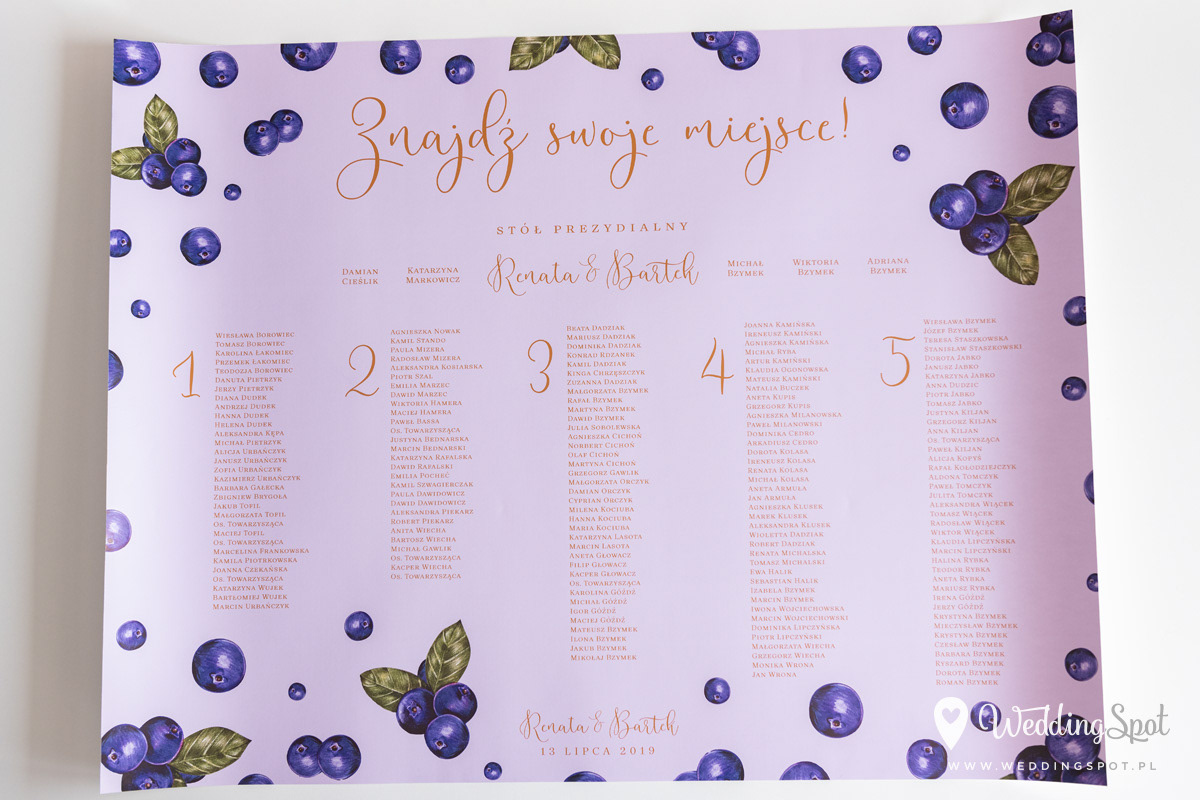 Znajdź swoje miejsce!
STÓŁ PREZYDIALNY
DAMIAN CIEŚLIK
KATARZYNA MARKOWICZ
Renata & Bartek
MICHAŁ BZYMEK
WIKTORIA BZYMEK
ADRIANA BZYMEK
1
WIESŁAWA BOROWIEC
TOMASZ BOROWIEC
KAROLINA ŁAKOMIEC
PRZEMEK ŁAKOMIEC
TEODOZJA BOROWIEC
DANUTA PIETRZYK
JERZY PIETRZYK
DIANA DUDEK
ANDRZEJ DUDEK
HANNA DUDEK
HELENA DUDEK
ALEKSANDRA KĘPA
MICHAŁ PIETRZYK
ALICJA URBAŃCZYK
JANUSZ URBAŃCZYK
ZOFIA URBAŃCZYK
KAZIMIERZ URBAŃCZYK
BARBARA GAŁECKA
ZBIGNIEW BRYGOŁA
JAKUB TOFIL
MAŁGORZATA TOFIL
OS. TOWARZYSZĄCA
MACIEJ TOFIL
OS. TOWARZYSZĄCA
MARCELINA FRANKOWSKA
KAMILA PIOTRKOWSKA
JOANNA CZEKAŃSKA
OS. TOWARZYSZĄCA
KATARZYNA WUJEK
BARTŁOMIEJ WUJEK
MARCIN URBAŃCZYK
2
AGNIESZKA NOWAK
KAMIL STANDO
PAULA MIZERA
RADOSŁAW MIZERA
ALEKSANDRA KOSIARSKA
PIOTR SZAL
EMILIA MARZEC
DAWID MARZEC
WIKTORIA HAMERA
MACIEJ HAMERA
PAWEŁ BASSA
OS. TOWARZYSZĄCA
JUSTYNA BEDNARSKA
MARCIN BEDNARSKI
KATARZYNA RAFALSKA
DAWID RAFALSKI
EMILIA POCHEĆ
KAMIL SZWAGIERCZAK
PAULA DAWIDOWICZ
DAWID DAWIDOWICZ
ALEKSANDRA PIEKARZ
ROBERT PIEKARZ
ANITA WIECHA
BARTOSZ WIECHA
MICHAŁ GAWLIK
OS. TOWARZYSZĄCA
KACPER WIECHA
OS. TOWARZYSZĄCA
3
BEATA DADZIAK
MARIUSZ DADZIAK
DOMINIKA DADZIAK
KONRAD RDZANEK
KAMIL DADZIAK
KINGA CHRZĘSZCZYK
ZUZANNA DADZIAK
MAŁGORZATA BZYMEK
RAFAŁ BZYMEK
MARTYNA BZYMEK
DAWID BZYMEK
JULIA SOBOLEWSKA
AGNIESZKA CICHOŃ
NORBERT CICHOŃ
OLAF CICHOŃ
MARTYNA CICHOŃ
GRZEGORZ GAWLIK
MAŁGORZATA ORCZYK
DAMIAN ORCZYK
CYPRIAN ORCZYK
MILENA KOCIUBA
HANNA KOCIUBA
MARIA KOCIUBA
KATARZYNA LASOTA
MARCIN LASOTA
ANETA GŁOWACZ
FILIP GŁOWACZ
KACPER GŁOWACZ
OS. TOWARZYSZĄCA
KAROLINA GÓŹDŹ
MICHAŁ GÓŹDŹ
IGOR GÓŹDŹ
MACIEJ GÓŹDŹ
MATEUSZ BZYMEK
ILONA BZYMEK
JAKUB BZYMEK
MIKOŁAJ BZYMEK
4
JOANNA KAMIŃSKA
IRENEUSZ KAMIŃSKI
AGNIESZKA KAMIŃSKA
MICHAŁ RYBA
ARTUR KAMIŃSKI
KLAUDIA OGONOWSKA
MATEUSZ KAMIŃSKI
NATALIA BUCZEK
ANETA KUPIS
GRZEGORZ KUPIS
AGNIESZKA MILANOWSKA
PAWEŁ MILANOWSKI
DOMINIKA CEDRO
ARKADIUSZ CEDRO
DOROTA KOLASA
IRENEUSZ KOLASA
RENATA KOLASA
MICHAŁ KOLASA
ANETA ARMUŁA
JAN ARMUŁA
AGNIESZKA KLUSEK
MAREK KLUSEK
ALEKSANDRA KLUSEK
WIOLETTA DADZIAK
ROBERT DADZIAK
RENATA MICHALSKA
TOMASZ MICHALSKI
EWA HALIK
SEBASTIAN HALIK
IZABELA BZYMEK
MARCIN BZYMEK
IWONA WOJCIECHOWSKA
MARCIN WOJCIECHOWSKI
DOMINIKA LIPCZYŃSKA
PIOTR LIPCZYŃSKI
MAŁGORZATA WIECHA
GRZEGORZ WIECHA
MONIKA WRONA
JAN WRONA
5
WIESŁAWA BZYMEK
JÓZEF BZYMEK
TERESA STASZKOWSKA
STANISŁAW STASZKOWSKI
DOROTA JABKO
JANUSZ JABKO
KATARZYNA JABKO
ANNA DUDZIC
PIOTR JABKO
TOMASZ JABKO
JUSTYNA KILJAN
GRZEGORZ KILJAN
ANNA KILJAN
OS. TOWARZYSZĄCA
PAWEŁ KILJAN
ALICJA KOPYŚ
RAFAŁ KOŁODZIEJCZYK
ALDONA TOMCZYK
PAWEŁ TOMCZYK
JULITA TOMCZYK
ALEKSANDRA WIĄCEK
TOMASZ WIĄCEK
RADOSŁAW WIĄCEK
WIKTOR WIĄCEK
KLAUDIA LIPCZYŃSKA
MARCIN LIPCZYŃSKI
HALINA RYBKA
TEODOR RYBKA
ANETA RYBKA
MARIUSZ RYBKA
IRENA GÓŹDŹ
JERZY GÓŹDŹ
KRYSTYNA BZYMEK
MIECZYSŁAW BZYMEK
KRYSTYNA BZYMEK
CZESŁAW BZYMEK
BARBARA BZYMEK
RYSZARD BZYMEK
DOROTA BZYMEK
ROMAN BZYMEK
Renata & Bartek
13 LIPCA 2019
WeddingSpot
WWW.WEDDINGSPOT.PL